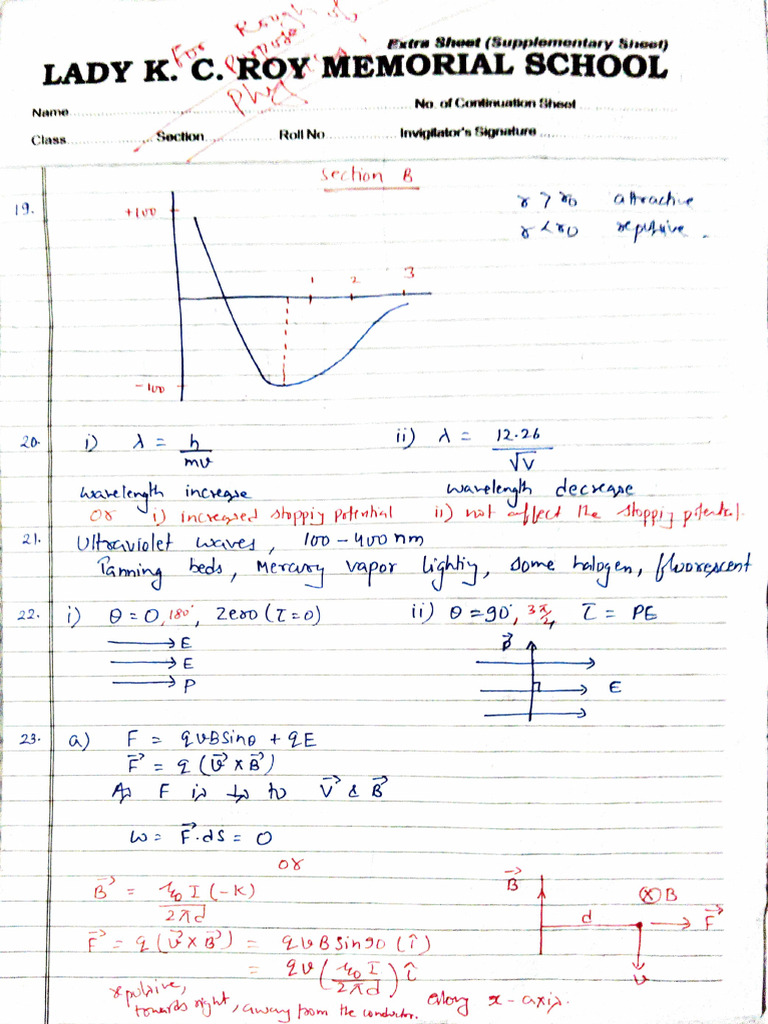 For Rough
Purpose of
Physics!
Extra Sheet (Supplementary Sheet)
LADY K. C. ROY MEMORIAL SCHOOL
Name No. of Continuation Sheet
Class Section Roll No Invigilator's Signature
Section B
19. +100 r > r0 attractive
r < r0 repulsive.
1 2 3
-100
20. i) λ = h/mv ii) λ = 12.26/√V
wavelength increase wavelength decrease
or i) increased stoppig potential ii) not affect the stoppig potential.
21. Ultraviolet waves, 100-400nm
Tanning beds, Mercury vapor lightig, some halogen, fluorescent
22. i) θ = 0, 180°, zero (τ = 0) ii) θ = 90°, 3π/2, τ = PE
E P⃗
E E
P
23. a) F = qvBsinθ + qE
F⃗ = q (v⃗ × B⃗)
As F is ⊥r to V⃗ & B⃗
W = F⃗·ds = 0
or
B⃗ = μ0 I (-k)/2πd B⃗ ⊗B
d F⃗
F⃗ = q (v⃗ × B⃗) = qvBsin90 (î)
= qv (μ0 I/2πd) î v
repulsive, along x-axis.
towards right, away from the conductor.